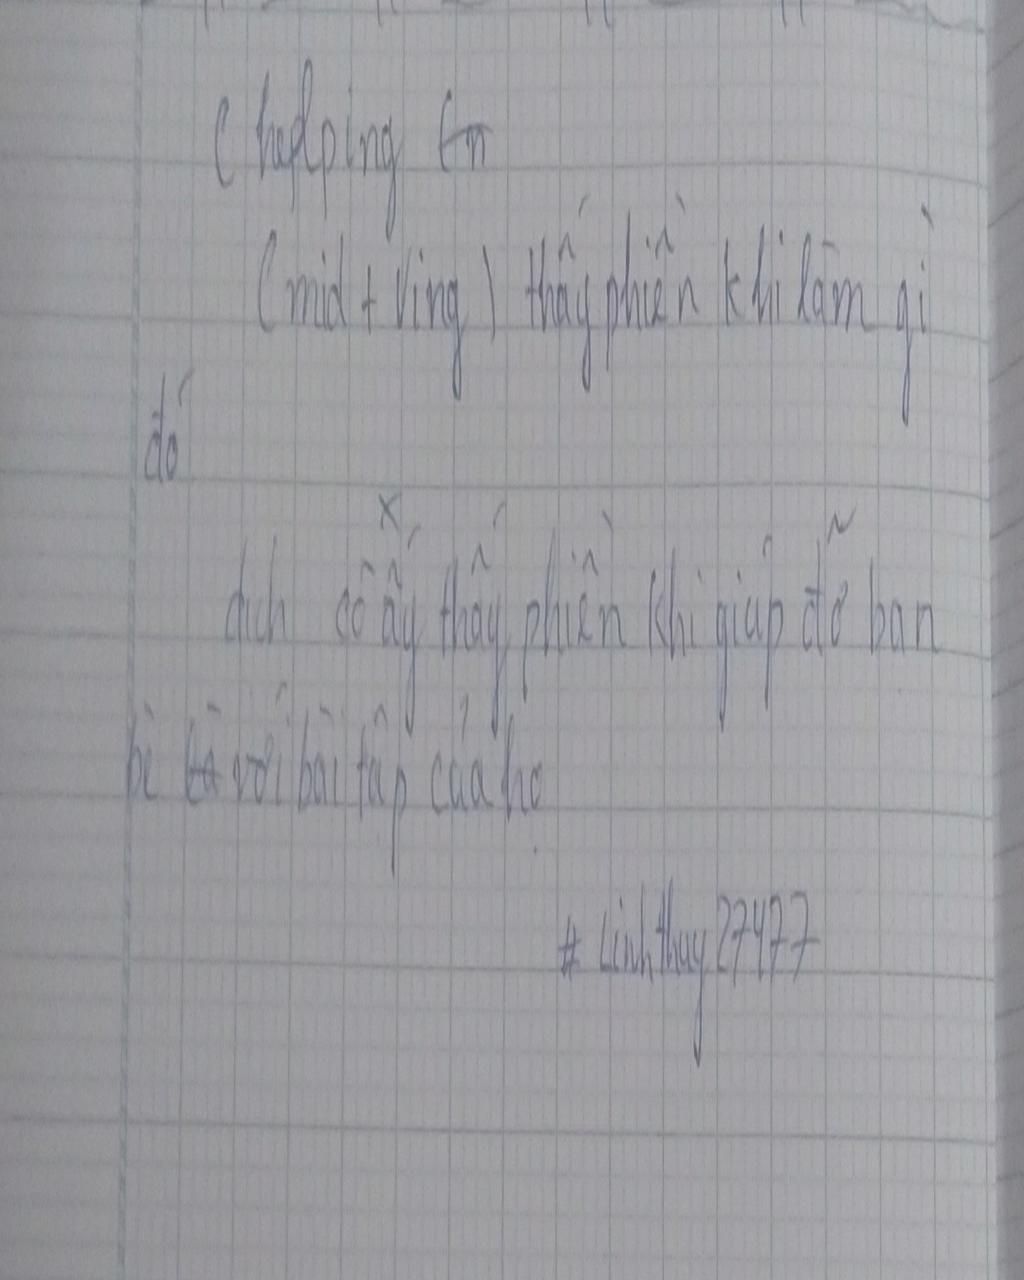 ( heplping
(mid + Ving) thấy phiền khi làm gì
đó
dich cô ấy thấy phiền khi giúp đỡ ban
bè với bài tâp của họ
# Linhthuy27477